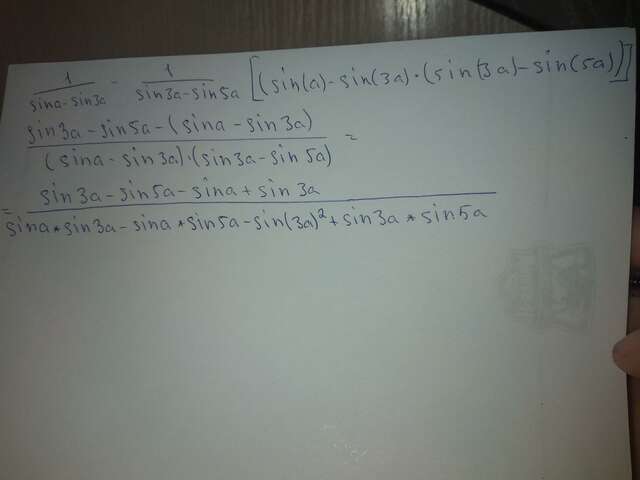 1/(sina-sin3a) - 1/(sin3a-sin5a) [(sin(a)-sin(3a)·(sin(3a)-sin(5a))]
(sin3a-sin5a-(sina-sin3a))/((sina-sin3a)·(sin3a-sin5a)) =
= (sin3a-sin5a-sina+sin3a)/(sina*sin3a-sina*sin5a-sin(3a)²+sin3a*sin5a)